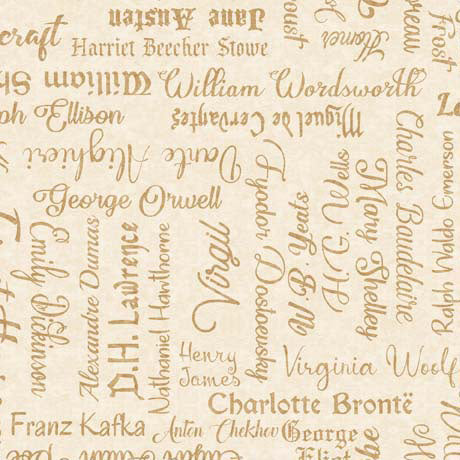 Jane Austen
Harriet Beecher Stowe
craft
oust
Homer
eau
Frost
William Sh
William Wordsworth
ph Ellison
Miguel de Cervantes
Dante Alighieri
George Orwell
Emily Dickinson
Alexandre Dumas
D.H. Lawrence
Nathaniel Hawthorne
Virgil
Fyodor Dostoevsky
W. B. Yeats
H.G. Wells
Mary Shelley
Charles Baudelaire
Ralph Waldo Emmerson
Henry
James
Virginia Woolf
Charlotte Brontë
Franz Kafka
Anton Chekhov
George
Eliot
Edgar Allan Poe